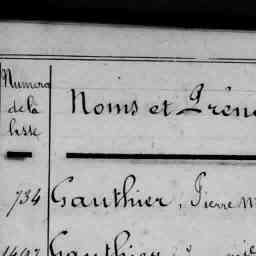 Numero
de la
lisse
Noms et Prén
734 Gauthier, Pierre M
1497 Gauthier